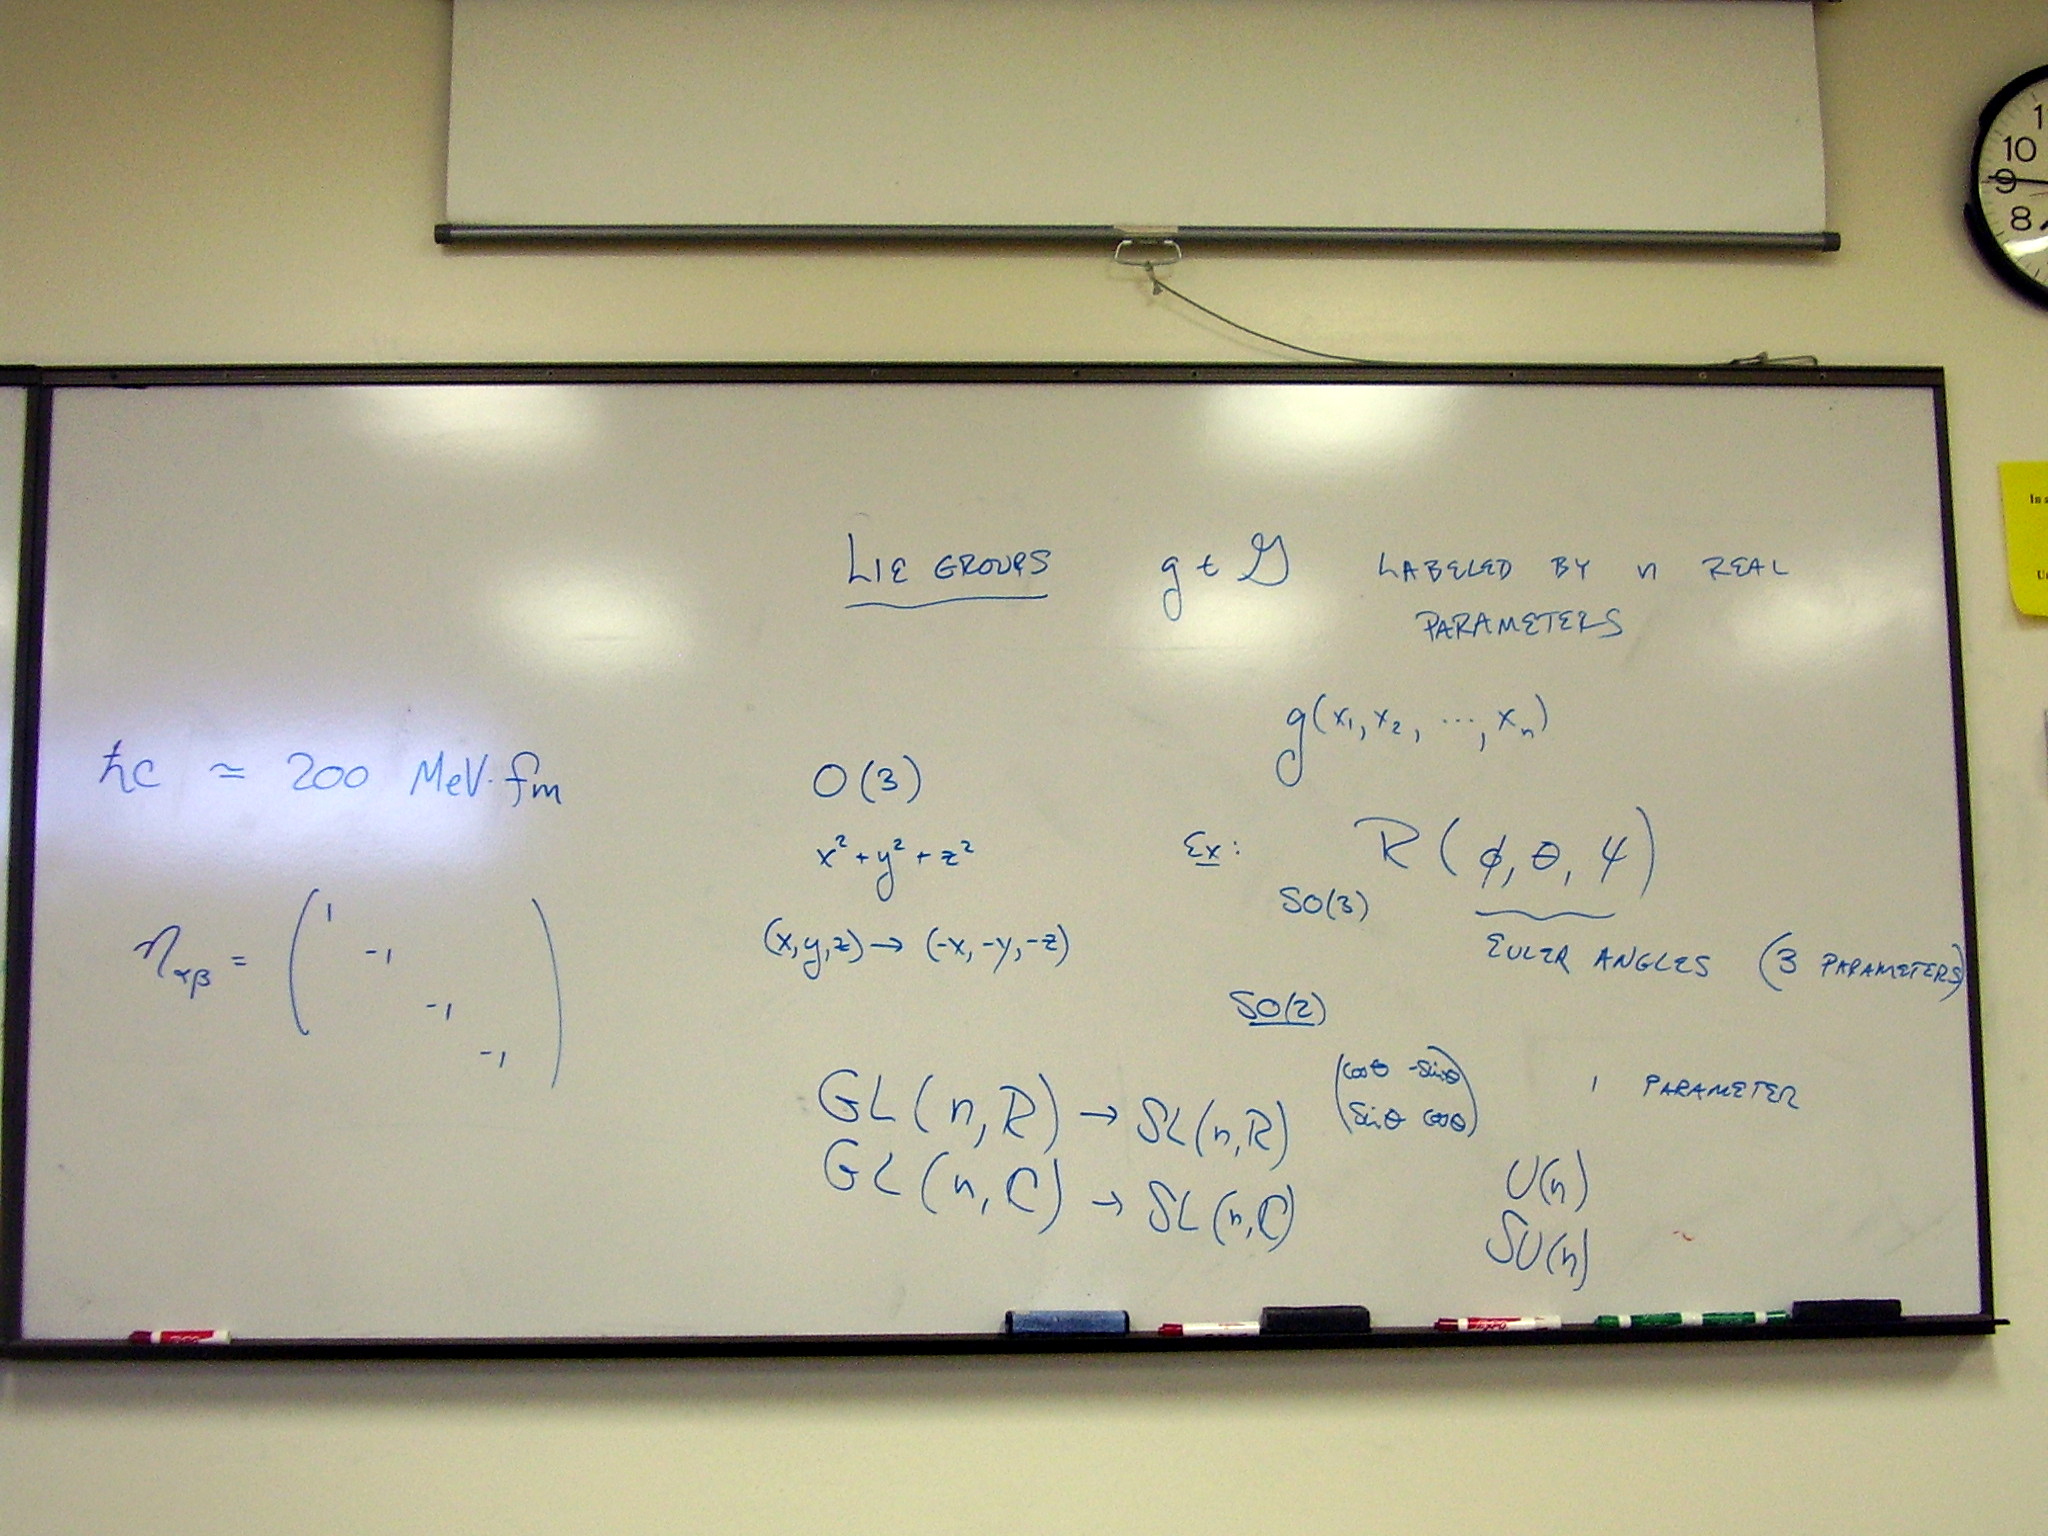 LIE GROUPS g ∈ G LABELED BY n REAL
PARAMETERS
g(x₁, x₂, ..., xₙ)
ħc ≃ 200 MeV·fm
η_αβ = ( 1
-1
-1
-1 )
O(3)
x² + y² + z²
(x,y,z) → (-x, -y, -z)
Ex: R(φ, θ, ψ)
SO(3)
EULER ANGLES (3 PARAMETERS)
SO(2)
(cosθ -sinθ
sinθ cosθ) 1 PARAMETER
GL(n,R) → SL(n,R)
GL(n,C) → SL(n,C)
U(n)
SU(n)
10
9
8
In